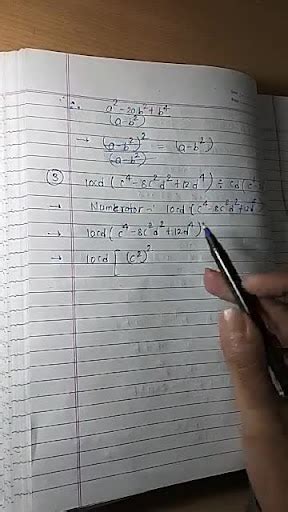 a² - 2ab² + b⁴
(a-b²)
→ (a-b²)² = (a-b²)
(a-b²)
③ 10cd (c⁴-8c²d²+12d⁴) ÷ 5d (c²
→ Numerator - 10cd (c⁴-8c²d²+12d⁴
→ 10cd (c⁴-8c²d²+12d⁴)
→ 10cd [ (c²)²